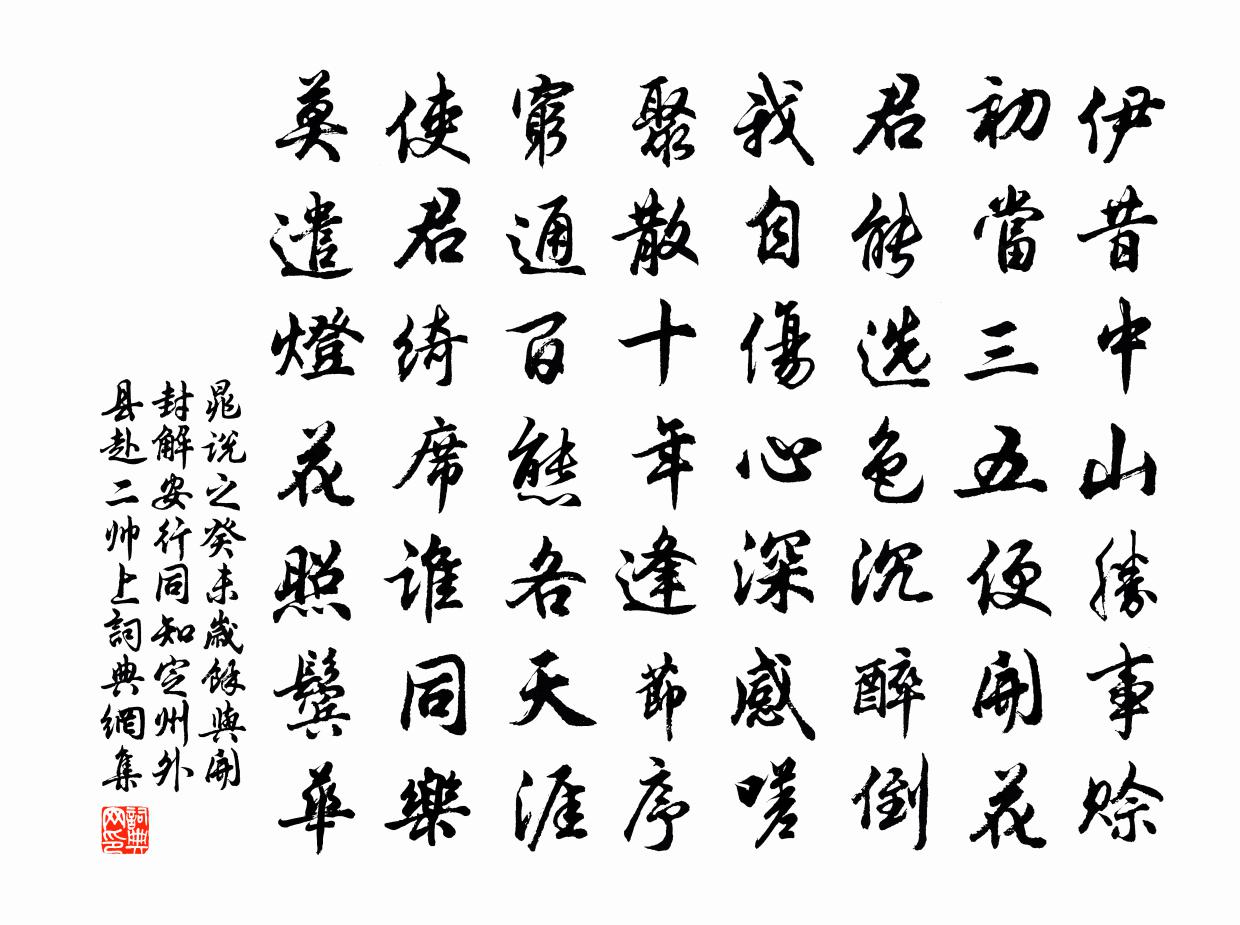 伊昔中山勝事賒
初當三五便開花
君能选色沉醉倒
我自傷心深感嗟
聚散十年逢節序
窮通百態各天涯
使君綺席誰同樂
莫遣燈花照鬢華
晁说之癸未歲餘與開
封解安行同知定州外
县赴二帅上詞典網集
詞典
网印